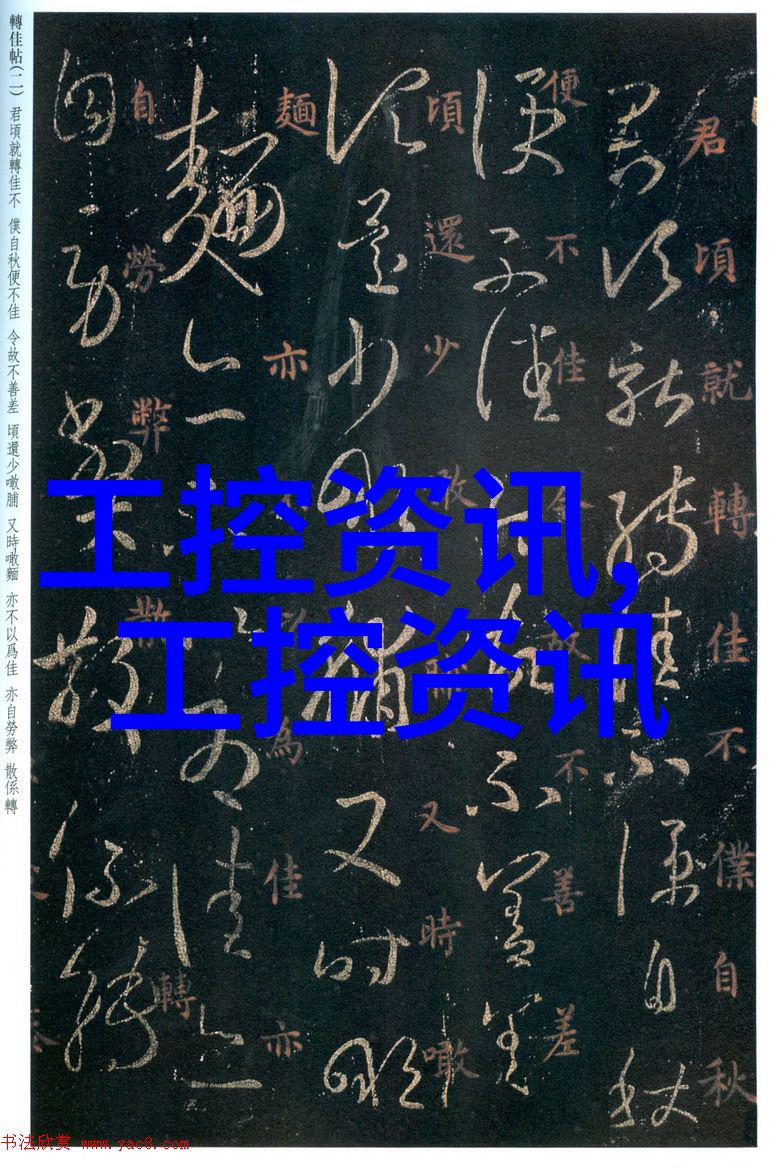 轉佳帖(二) 君頃就轉佳不 僕自秋便不佳 令故不善差 頃還少噉脯 又時噉麵 亦不以爲佳 亦自勞弊 散係轉
君頃就轉佳不僕自秋
便不佳令故不善差
頃還少噉脯又時噉
麵亦不以為佳亦
自勞弊散係轉
工控资讯,
工控资讯
书法欣赏 www.yac8.com